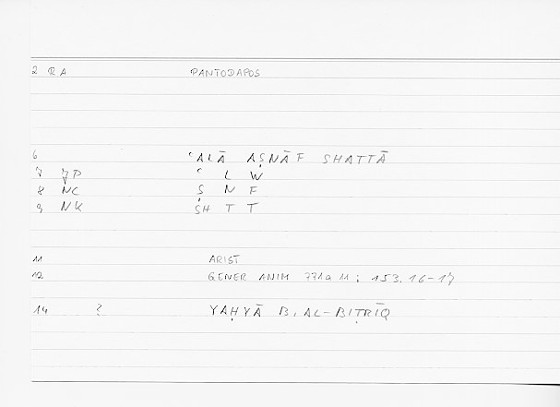 2 RA PANTODAPOS
6 ʿALĀ AṢNĀF SHATTĀ
7 JP ʿ L W
8 NC Ṣ N F
9 NK SH T T
11 ARIST
12 GENER ANIM 771a 11 ; 153.16-17
14 ? YAḤYĀ B. AL-BIṬRĪQ